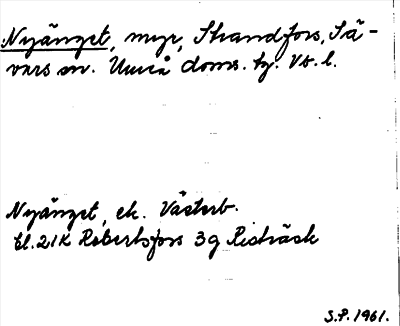 Nyänget, myr, Strandfors, Sä-
vars sn. Umeå doms. tg. Vb. l.
Nyänget, ek. Västerb.
El. 21K Robertsfors 3g Risträsk
S.P. 1961.